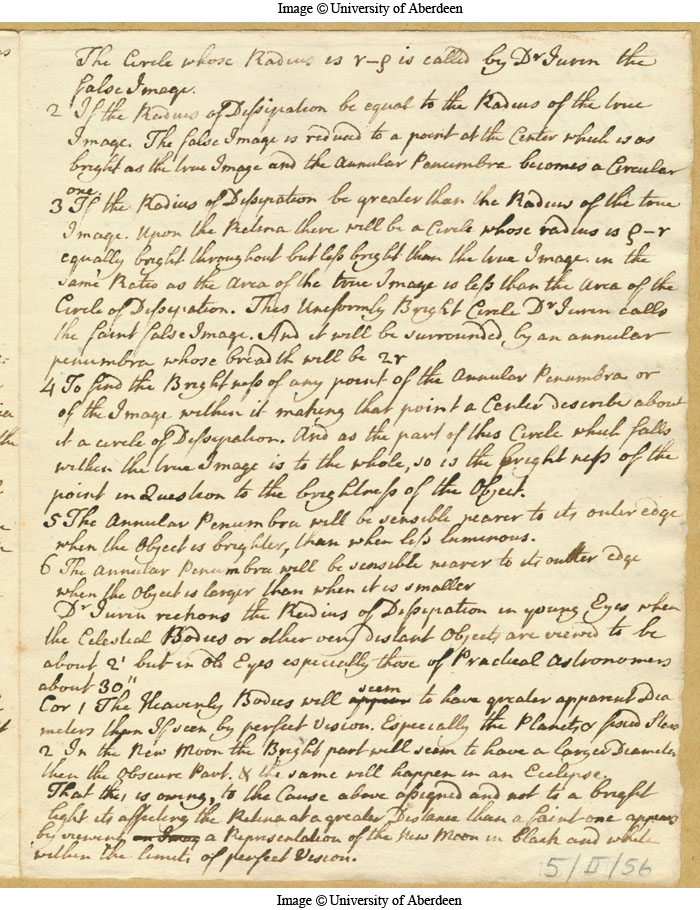 Image © University of Aberdeen
The Circle whose Radius is r–ρ is called by Dr Jurin the
false Image.
2 If the Radius of Dissipation be equal to the Radius of the true
Image. The false Image is reduced to a point at the Center which is as
bright as the true Image and the Annular Penumbra becomes a Circular
one.
3 If the Radius of Dissipation be greater than the Radius of the true
Image. Upon the Retina there will be a Circle whose radius is ρ–r
equally bright throughout but less bright than the true Image. in the
same Ratio as the Area of the true Image is less than the Area of the
Circle of Dissipation. This Uniformly Bright Circle Dr Jurin calls
the faint false Image. And it will be surrounded, by an annular
penumbra whose breadth will be 2r
4 To find the Brightness of any point of the Annular Penumbra or
of the Image within it making that point a Center describe about
it a circle of Dissipation. And as the part of this Circle which falls
within the true Image is to the whole, so is the bright ness of the
point in Question to the brightness of the Object.
5 The Annular Penumbra will be sensible nearer to its outer edge
when the Object is brighter, than when less luminous.
6 The annular Penumbra will be sensible nearer to its outter edge
when the Object is larger than when it is smaller
Dr Jurin reckons the Radius of Dissipation in young Eyes when
the Celestial Bodies or other very distant Objects are viewed to be
about 2' but in Old Eyes especially those of Practical Astronomers
about 30"
Cor 1 The Heavenly Bodies will seem to have greater apparent Dia
meters than If seen by perfect Vision. Especially the Planets & fixed Stars
2 In the New Moon the Bright part will seem to have a larger Diameter
then the Obscure Part. & the same will happen in an Eclipse.
That this is owing, to the Cause above assigned and not to a bright
light its affecting the Retina at a greater Distance than a faint one appears
by viewing a Representation of the New Moon in black and white
within the limits of perfect Vision.
5/II/56
Image © University of Aberdeen